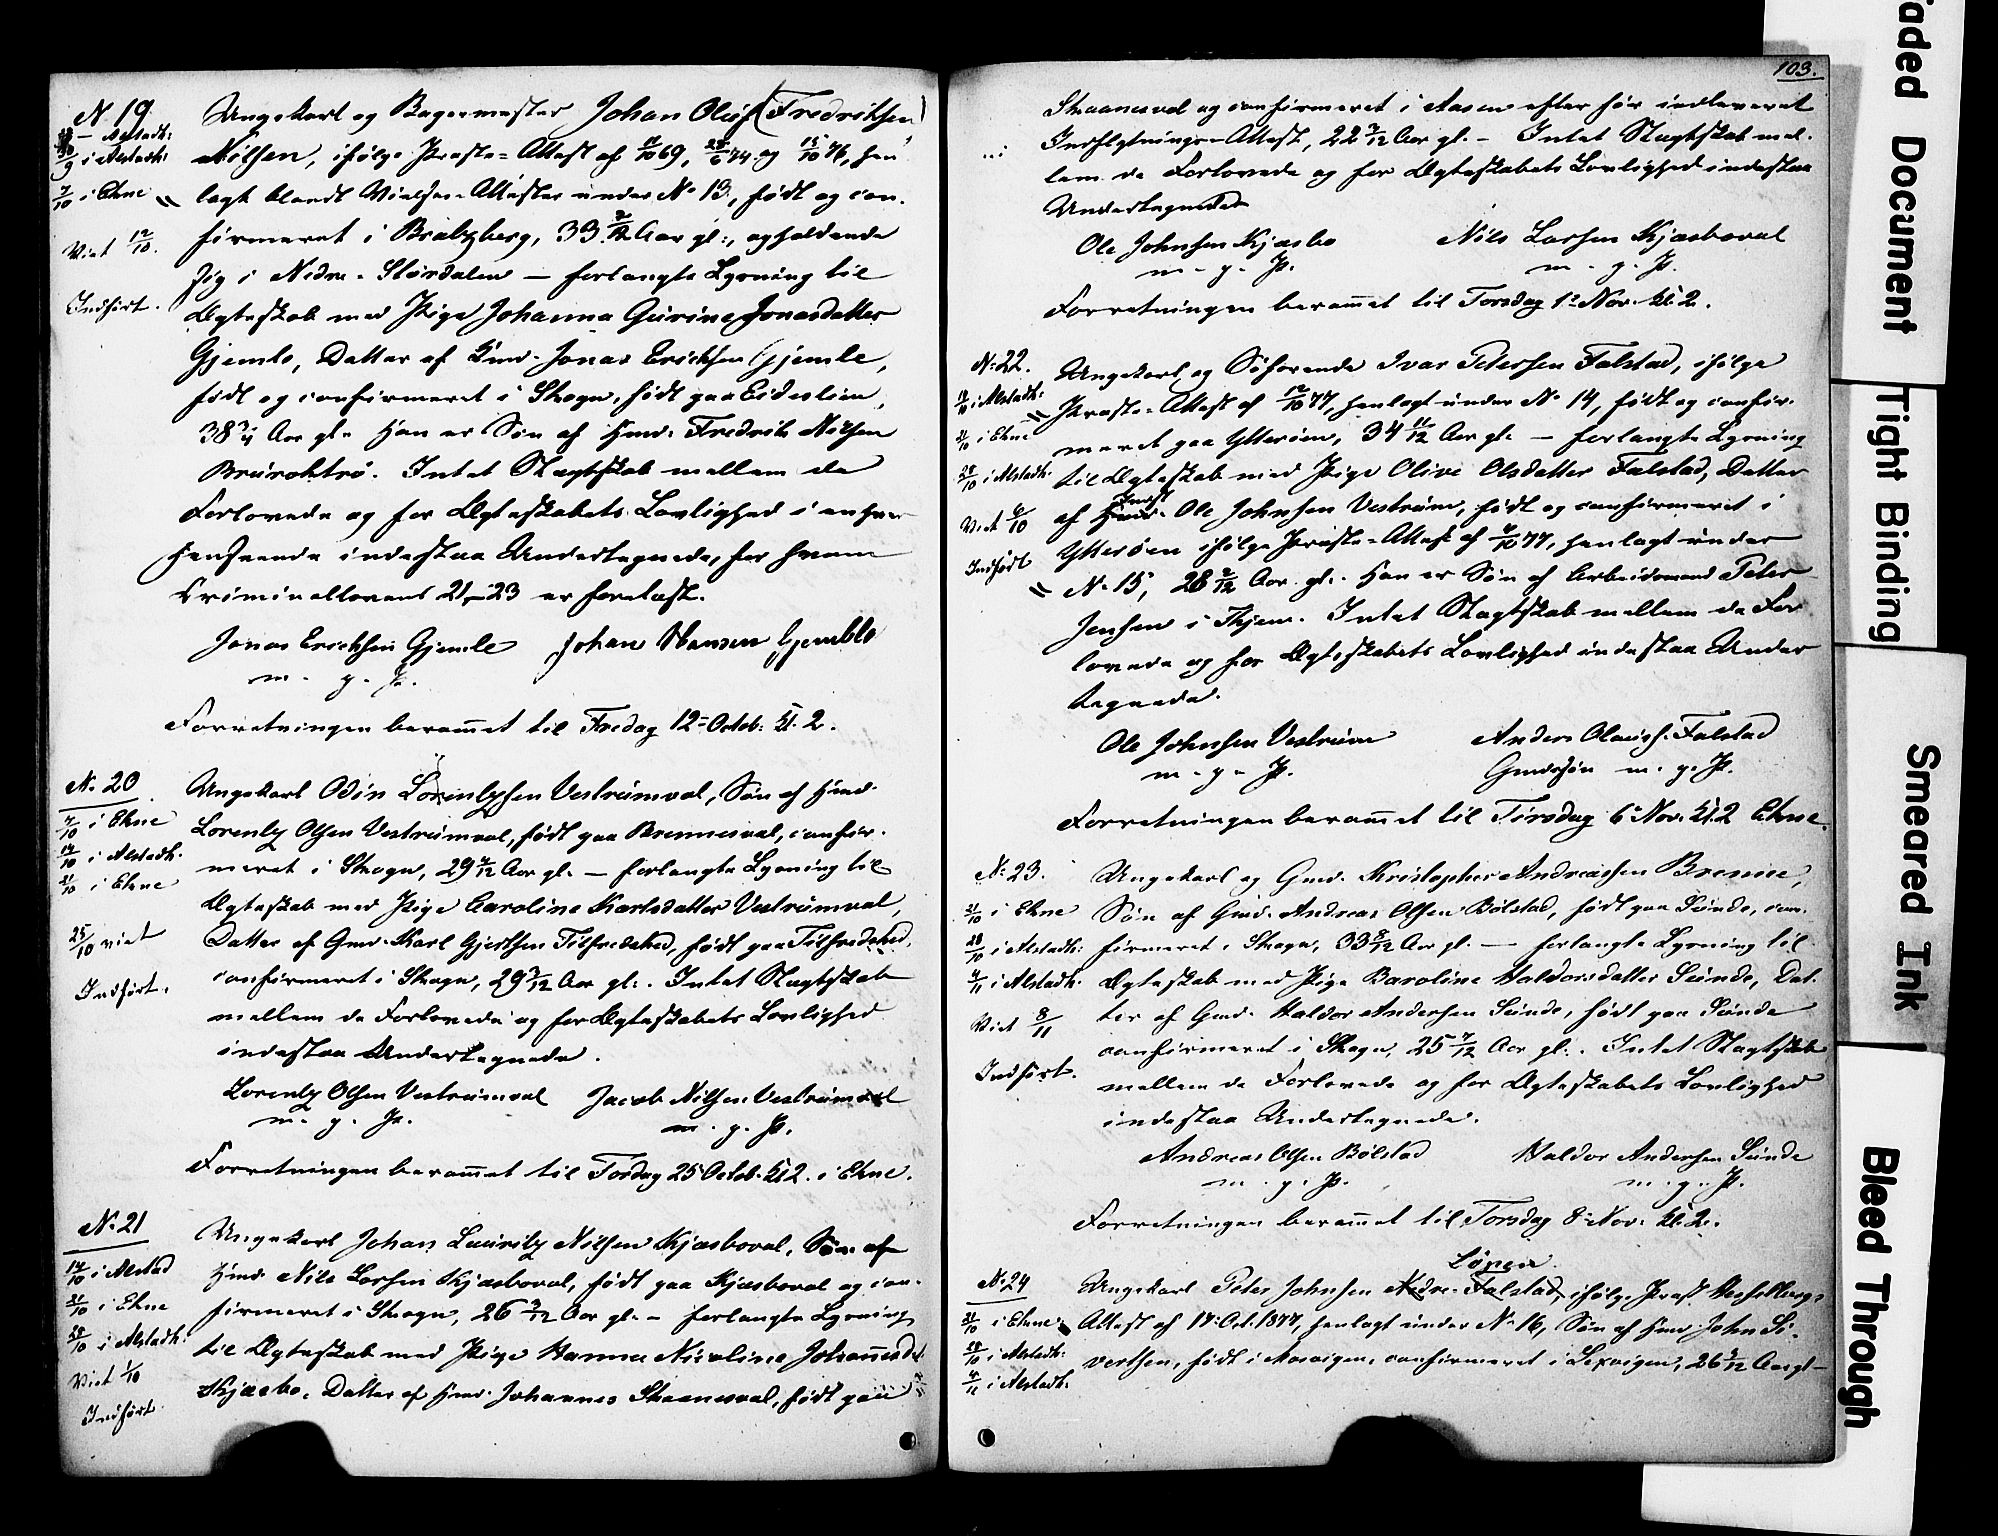 N. 19
i Alstadh:
30/9 i Alstadh:
7/10 i Ekne
Viet 12/10.
Indført.
Ungekarl og Bagermester Johan Oluf (Fredriksen)
Nilsen, ifølge Præste-Attest af 69, 74 og 76, hen-
lagt blandt Vielses-Attester under No 13, født og con-
firmeret i Bratsberg, 33 Aar gl:, opholdende
sig i Nedre-Størdalen — forlangte Lysning til
Ægteskab med Pige Johanna Gurine Jonasdatter
Gjemle, Datter af Gmd. Jonas Ericksen Gjemle,
født og confirmeret i Skogn, født paa Eideslien,
38 3/4 Aar gl. Han er Søn af Hmd. Fredrik Nilsen
Intet Slægtskab mellem de
Forlovede og for Ægteskabets Lovlighed i enhver
Henseende indestaa Undertegnede, for hvem
Criminallovens 21,-23 er forelæst.
Jonas Ericksen Gjemle Johan Hansen Gjemble
m. p. P.
Forretningen berammet til Fredag 12te Octob: Kl. 2.
N. 20
7/10 i Ekne
14/10 i Alstadh.
21/10 i Ekne
25/10 viet
Indført.
Ungekarl Odin Lorentzsen Vestrumval, Søn af Hmd.
Lorentz Olsen Vestrumval, født paa Brennesval, confir-
meret i Skogn, 29 Aar gl. — forlangte Lysning til
Ægteskab med Pige Caroline Karlsdatter Vestrumval,
Datter af Gmd. Karl Gjertsen Tilfredshed, født paa Tilfredshed,
confirmeret i Skogn, 29 3/12 Aar gl:. Intet Slægtskab
mellem de Forlovede og for Ægteskabets Lovlighed
indestaa Undertegnede.
Lorentz Olsen Vestrumval Jacob Nilsen Vestrumval
m. p. P. m. p. P.
Forretningen berammet til Torsdag 25 Octob. Kl 2. i Ekne.
N. 21
14/10 i Alstad
21/10 i Ekne
28/10 i Alstadh:
Viet 1/10
Indført.
Ungekarl Johan Lauritz Nilsen Kjæsboval, Søn af
Hmd. Nils Larsen Kjæsboval, født paa Kjæsboval og con-
firmeret i Skogn, 26 3/12 Aar gl. — forlangte Lysning
til Ægteskab med Pige Hanna Nicoline Johannesdat.
Kjæsbo, Datter af Hmd. Johannes Skaanesval, født paa
103.
Skaanesval og confirmeret i Aasen efter før indleveret
Indflytnings-Attest, 22 Aar gl. — Intet Slægtskab mel-
lem de Forlovede og for Ægteskabets Lovlighed indestaa
Undertegnede
Ole Johnsen Kjæsbo Nils Larsen Kjæsboval
m. p. P. m. p. P.
Forretningen berammet til Torsdag 1ste Nov. Kl. 2.
N. 22.
14/10 i Alstadh:
21/10 i Ekne
28/10 i Alstadh.
Viet 6/10
Indført
Ungekarl og Søfarende Ivar Petersen Falstad, ifølge
Præste-Attest af 77, henlagt under No 14, født og confir-
meret paa Ytterøen, 34 11/12 Aar gl. — forlangte Lysning
til Ægteskab med Pige Olive Olsdatter Falstad, Datter
af Ole Johnsen Vestrum, født og confirmeret i
Ytterøen ifølge Præste-Attest af 77, henlagt under
No 15, 28 Aar gl:. Han er Søn af Arbeidsmand Peter
Jensen i Skjem. Intet Slægtskab mellem de For-
lovede og for Ægteskabets Lovlighed indestaa Under-
tegnede.
Ole Johnsen Vestrum Anders Olaus. Falstad
m. p. P. Gmdssøn m. p. P.
Forretningen berammet til Tirsdag 6 Nov. Kl. 2 Ekne.
N. 23.
21/10 i Ekne
28/10 i Alstadh:
4/11 i Alstadh.
Viet 8/11
Indført.
Ungekarl og Gmd. Kristopher Andreassen Brenne,
Søn af Gmd. Andreas Olsen Bølstad, født paa Sunde, con-
firmeret i Skogn, 33 8/12 Aar gl. — forlangte Lysning til
Ægteskab med Pige Baroline Haldorsdatter Sunde, Dat-
ter af Gmd. Haldor Andersen Sunde, født paa Sunde
confirmeret i Skogn, 25 7/12 Aar gl:. Intet Slægtskab
mellem de Forlovede og for Ægteskabets Lovlighed
indestaa Undertegnede.
Andreas Olsen Bølstad Haldor Andersen Sunde
m. p. P. m. p. P.
Forretningen berammet til Torsdag 8de Nov. Kl. 2.
N. 24
21/10 i Ekne
28/10 i Alstadh:
4/11 i Alstadh.
Lønen.
Ungekarl Peter Johnsen Nedre-Falstad, ifølge Præst Hesselbergs
Attest af 17 Oct. 1877, henlagt under No 16, Søn af Hmd. John Si-
vertsen, født i Mosvigen, confirmeret i Lexvigen, 26 Aar gl —
Faded Document
Tight Binding
Smeared Ink
Bleed Through